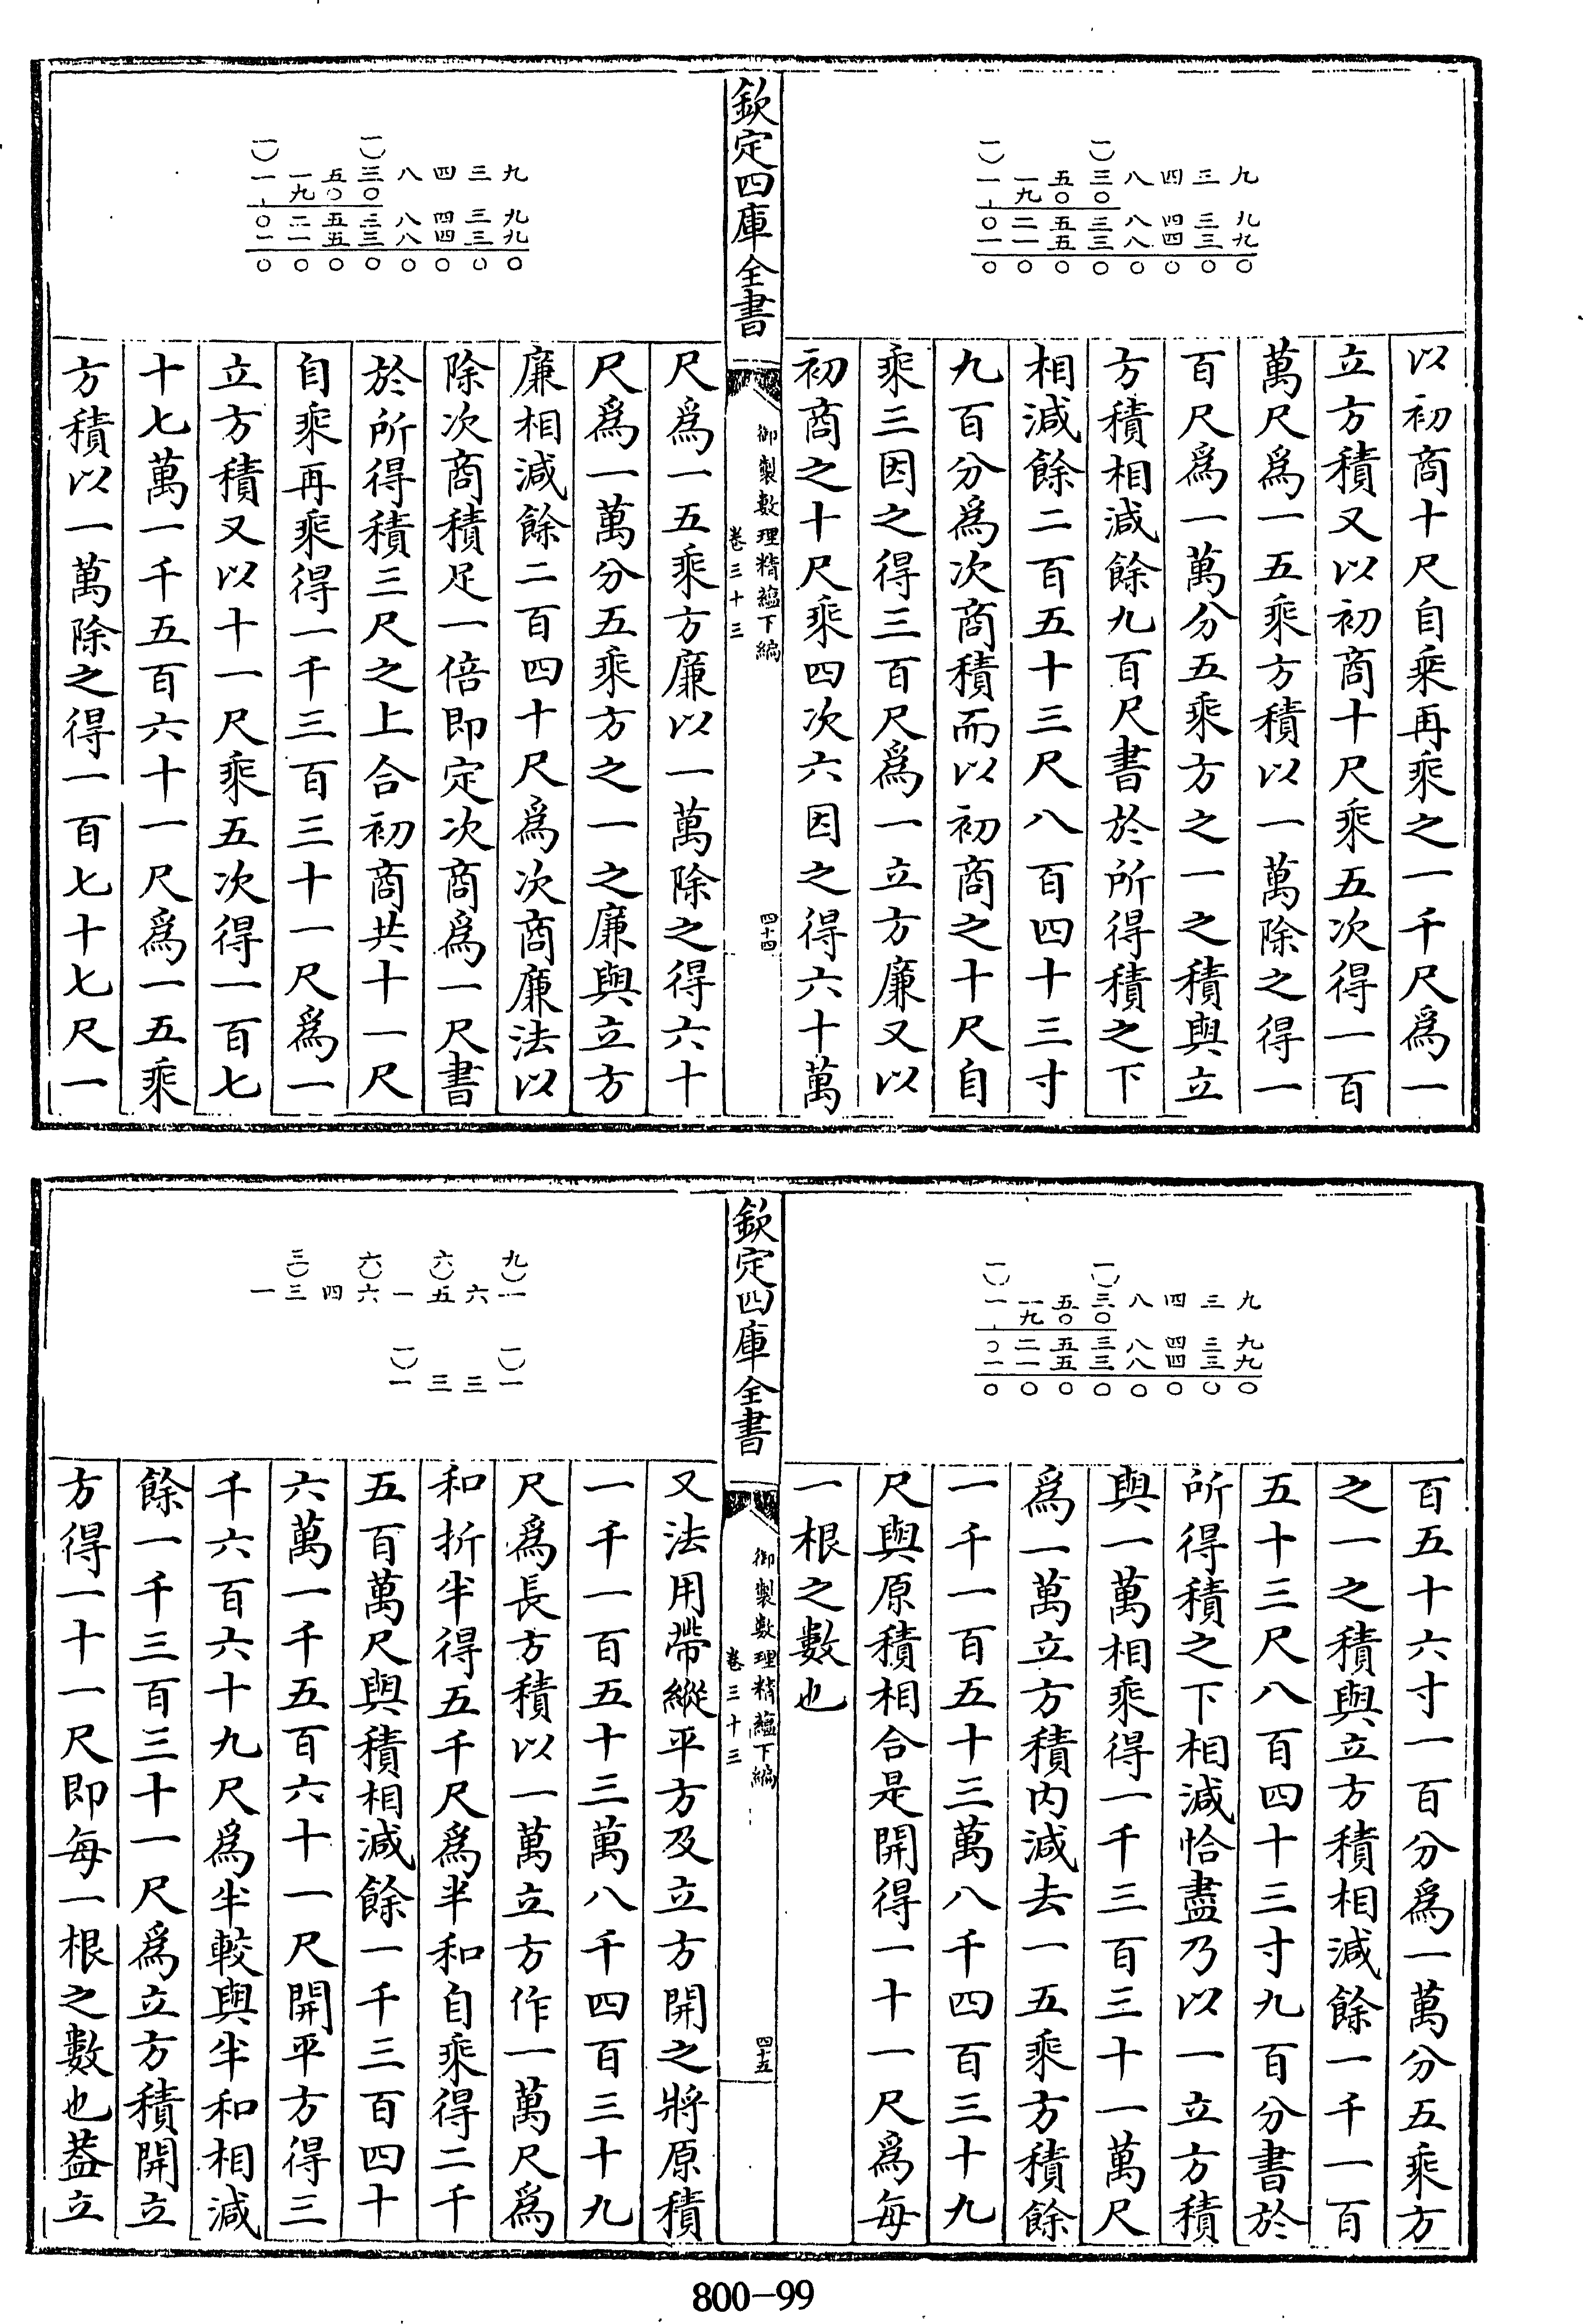 一〇　　　一〇
一一五三八四三九
　九〇〇
〇二五三八四三九
一一五三八四三九
〇〇〇〇〇〇〇〇
以初商十尺自乘再乘之一千尺爲一
立方積又以初商十尺乘五次得一百
萬尺爲一五乘方積以一萬除之得一
百尺爲一萬分五乘方之一之積與立
方積相減餘九百尺書於所得積之下
相減餘二百五十三尺八百四十三寸
九百分爲次商積而以初商之十尺自
乘三因之得三百尺爲一立方廉又以
初商之十尺乘四次六因之得六十萬
欽定四庫全書
御製數理精蘊下編
卷三十三
四十四
一〇　　　一〇
一一五三八四三九
　九〇〇
〇二五三八四三九
一一五三八四三九
〇〇〇〇〇〇〇〇
尺爲一五乘方廉以一萬除之得六十
尺爲一萬分五乘方之一之廉與立方
廉相減餘二百四十尺爲次商廉法以
除次商積足一倍即定次商爲一尺書
於所得積三尺之上合初商共十一尺
自乘再乘得一千三百三十一尺爲一
立方積又以十一尺乘五次得一百七
十七萬一千五百六十一尺爲一五乘
方積以一萬除之得一百七十七尺一
一〇　　　一〇
一一五三八四三九
　九〇〇
〇二五三八四三九
一一五三八四三九
〇〇〇〇〇〇〇〇
百五十六寸一百分爲一萬分五乘方
之一之積與立方積相減餘一千一百
五十三尺八百四十三寸九百分書於
所得積之下相減恰盡乃以一立方積
與一萬相乘得一千三百三十一萬尺
爲一萬立方積內減去一五乘方積餘
一千一百五十三萬八千四百三十九
尺與原積相合是開得一十一尺爲每
一根之數也
欽定四庫全書
御製數理精蘊下編
卷三十三
四十五
三　六　六　九
一三四六一五六一
一　　一
一三三一
又法用帶縱平方及立方開之將原積
一千一百五十三萬八千四百三十九
尺爲長方積以一萬立方作一萬尺爲
和折半得五千尺爲半和自乘得二千
五百萬尺與積相減餘一千三百四十
六萬一千五百六十一尺開平方得三
千六百六十九尺爲半較與半和相減
餘一千三百三十一尺爲立方積開立
方得一十一尺即每一根之數也葢立
800-99